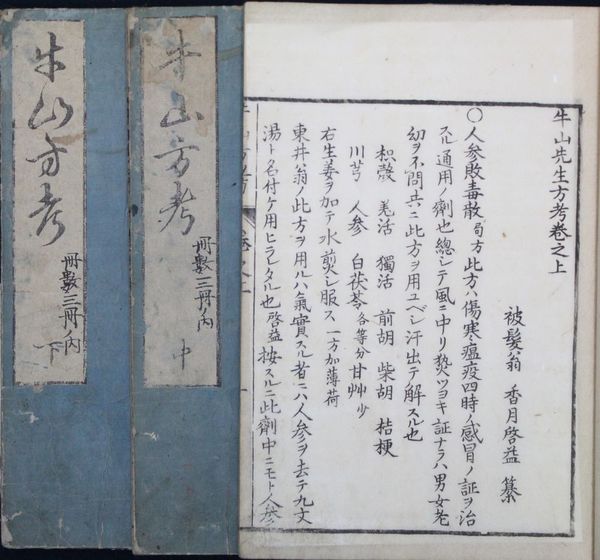 牛山先生方考卷之上
被髮翁 香月啓益 纂
○人參敗毒散 局方 此方ハ傷寒瘟疫四時ノ感冒ノ証ヲ治
スル通用ノ劑也總シテ風ニ中リ熱ツヨキ証ナラハ男女老
幼ヲ不問共ニ此方ヲ用ユベシ汗出テ解スル也
枳殼 羌活 獨活 前胡 柴胡 桔梗
川芎 人參 白茯苓 各等分 甘艸 少
右生姜ヲ加テ水煎シ服ス 一方加薄荷
東井翁ノ此方ヲ用ルハ氣實スル者ニハ人參ヲ去テ九丈
湯ト名付ケ用ヒラレタル也啓益按スルニ此劑中ニモト人參
牛山方考
冊數三冊ノ内
中
牛山方考
冊數三冊ノ内
下